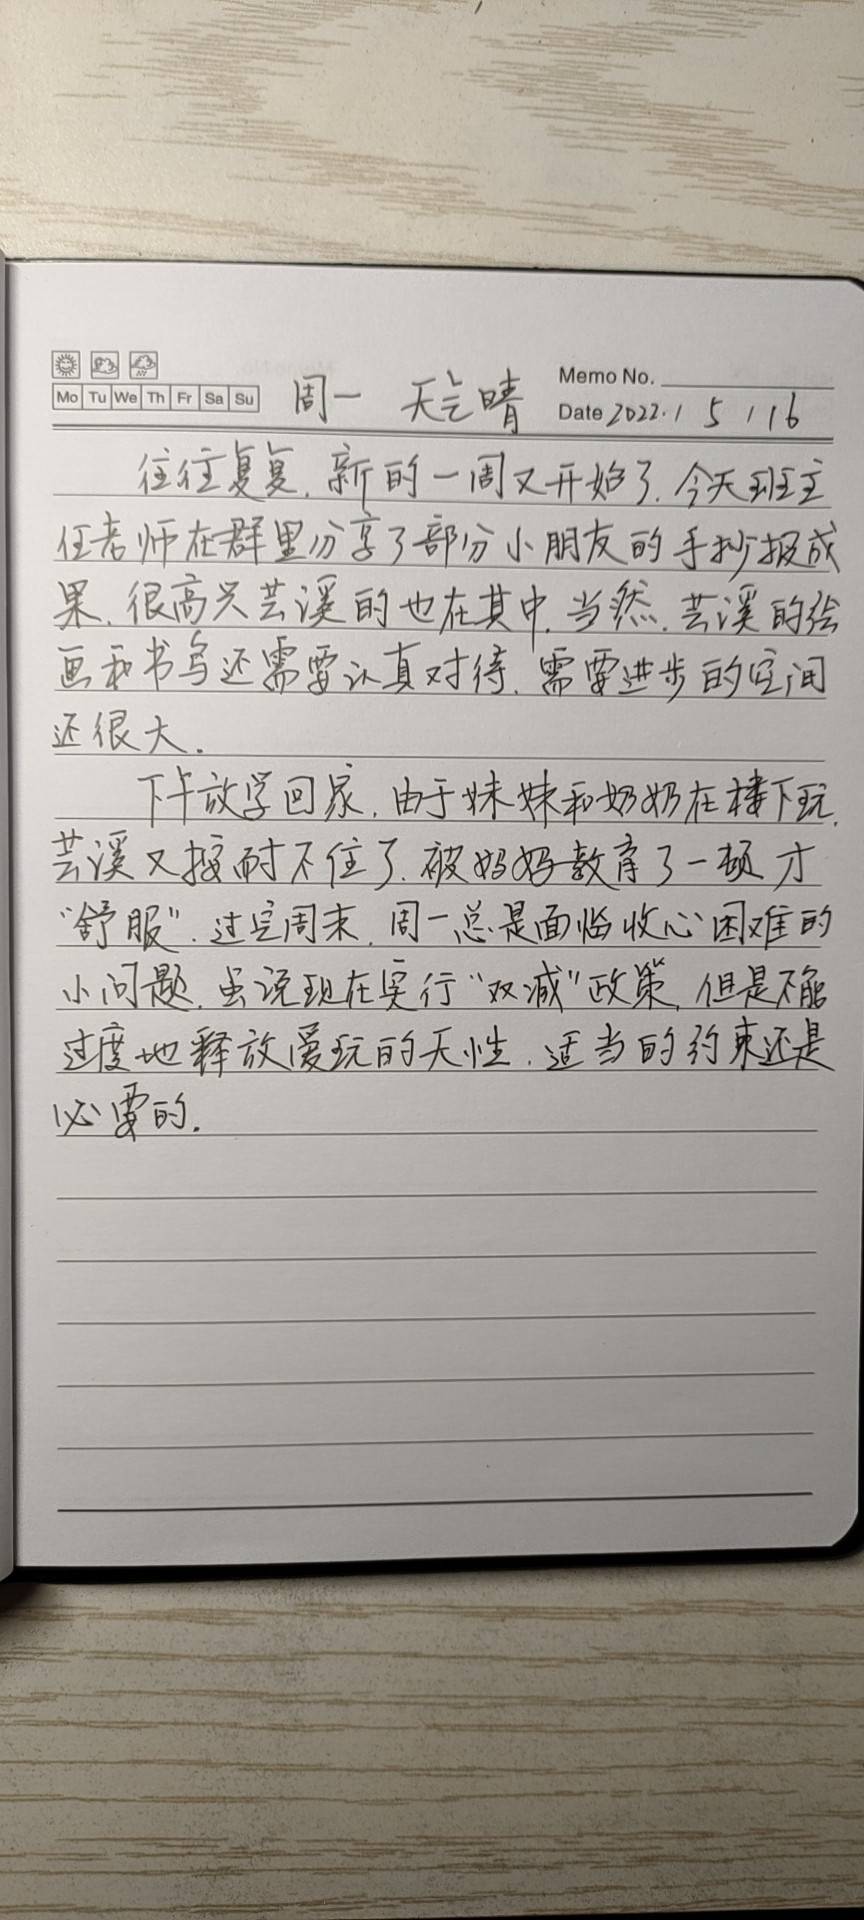 Memo No.
Mo Tu We Th Fr Sa Su 周一 天气晴 Date 2022. / 5 / 16
往往复复.新的一周又开始了.今天班主
任老师在群里分享了部分小朋友的手抄报成
果.很高兴芸溪的也在其中.当然.芸溪的绘
画和书写还需要认真对待.需要进步的空间
还很大.
下午放学回家.由于妹妹和奶奶在楼下玩.
芸溪又按耐不住了.被妈妈教育了一顿才
“舒服”.过完周末.周一总是面临收心困难的
小问题.虽说现在实行“双减”政策,但是不能
过度地释放爱玩的天性.适当的约束还是
必要的.